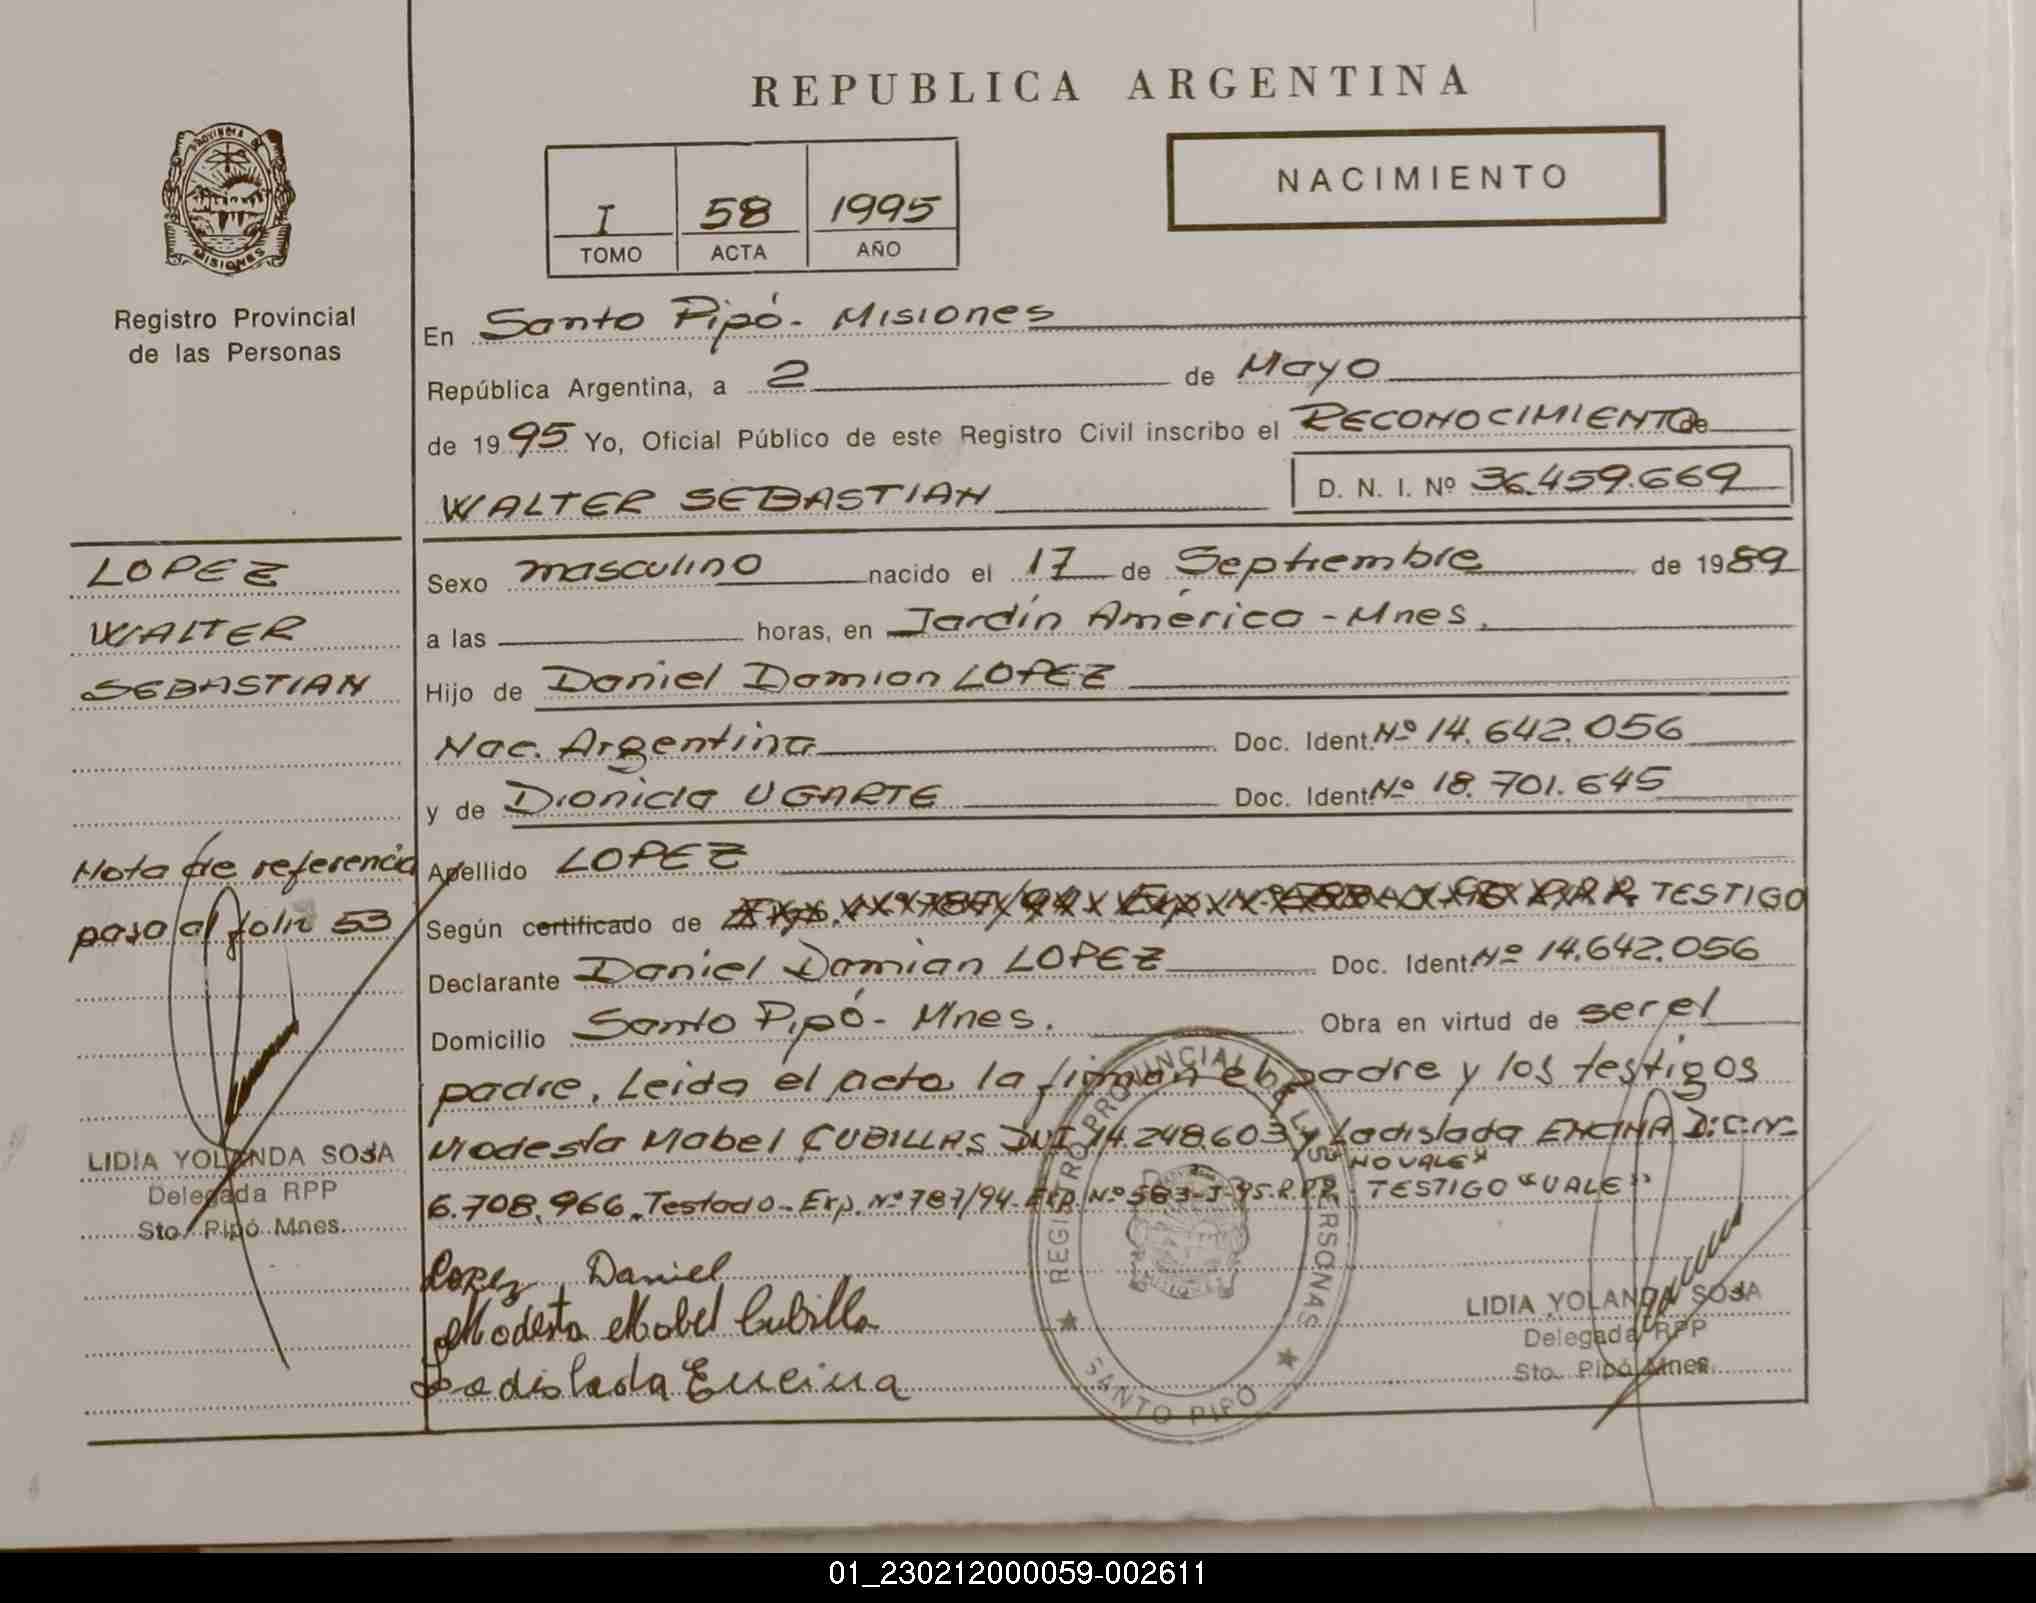 REPUBLICA ARGENTINA
PROVINCIA DE MISIONES
Registro Provincial
de las Personas
I 58 1995
TOMO ACTA AÑO
NACIMIENTO
En Santo Pipó - Misiones
República Argentina, a 2 de Mayo
de 1995 Yo, Oficial Público de este Registro Civil inscribo el RECONOCIMIENTO de
WALTER SEBASTIAN D. N. I. Nº 36.459.669
LOPEZ
WALTER
SEBASTIAN
Nota de referencia
paso al folio 53
LIDIA YOLANDA SOSA
Delegada RPP
Sto. Pipó Mnes.
Sexo masculino nacido el 17 de Septiembre de 1989
a las horas, en Jardín América - Mnes.
Hijo de Daniel Damian LOPEZ
Nac. Argentina Doc. Ident. Nº 14.642.056
y de Dionicia UGARTE Doc. Ident. Nº 18.701.645
Apellido LOPEZ
Según certificado de TESTIGO
Declarante Daniel Damian LOPEZ Doc. Ident. Nº 14.642.056
Domicilio Santo Pipó - Mnes. Obra en virtud de ser el
padre. Leida el acta la firman el padre y los testigos
Modesta Mabel CUBILLAS DNI 14.248.603 y Ladislada ENCINA D.C.Nº
"NO VALE"
6.708.966. Testado - Exp. Nº 787/94 - Exp. Nº 583-J-95. R.P.P. TESTIGO "VALE"
Lopez Daniel
Modesta Mabel Cubilla
Ladislada Encina
REGISTRO PROVINCIAL DE LAS PERSONAS
SANTO PIPO
LIDIA YOLANDA SOSA
Delegada RPP
Sto. Pipó Mnes.
01_230212000059-002611